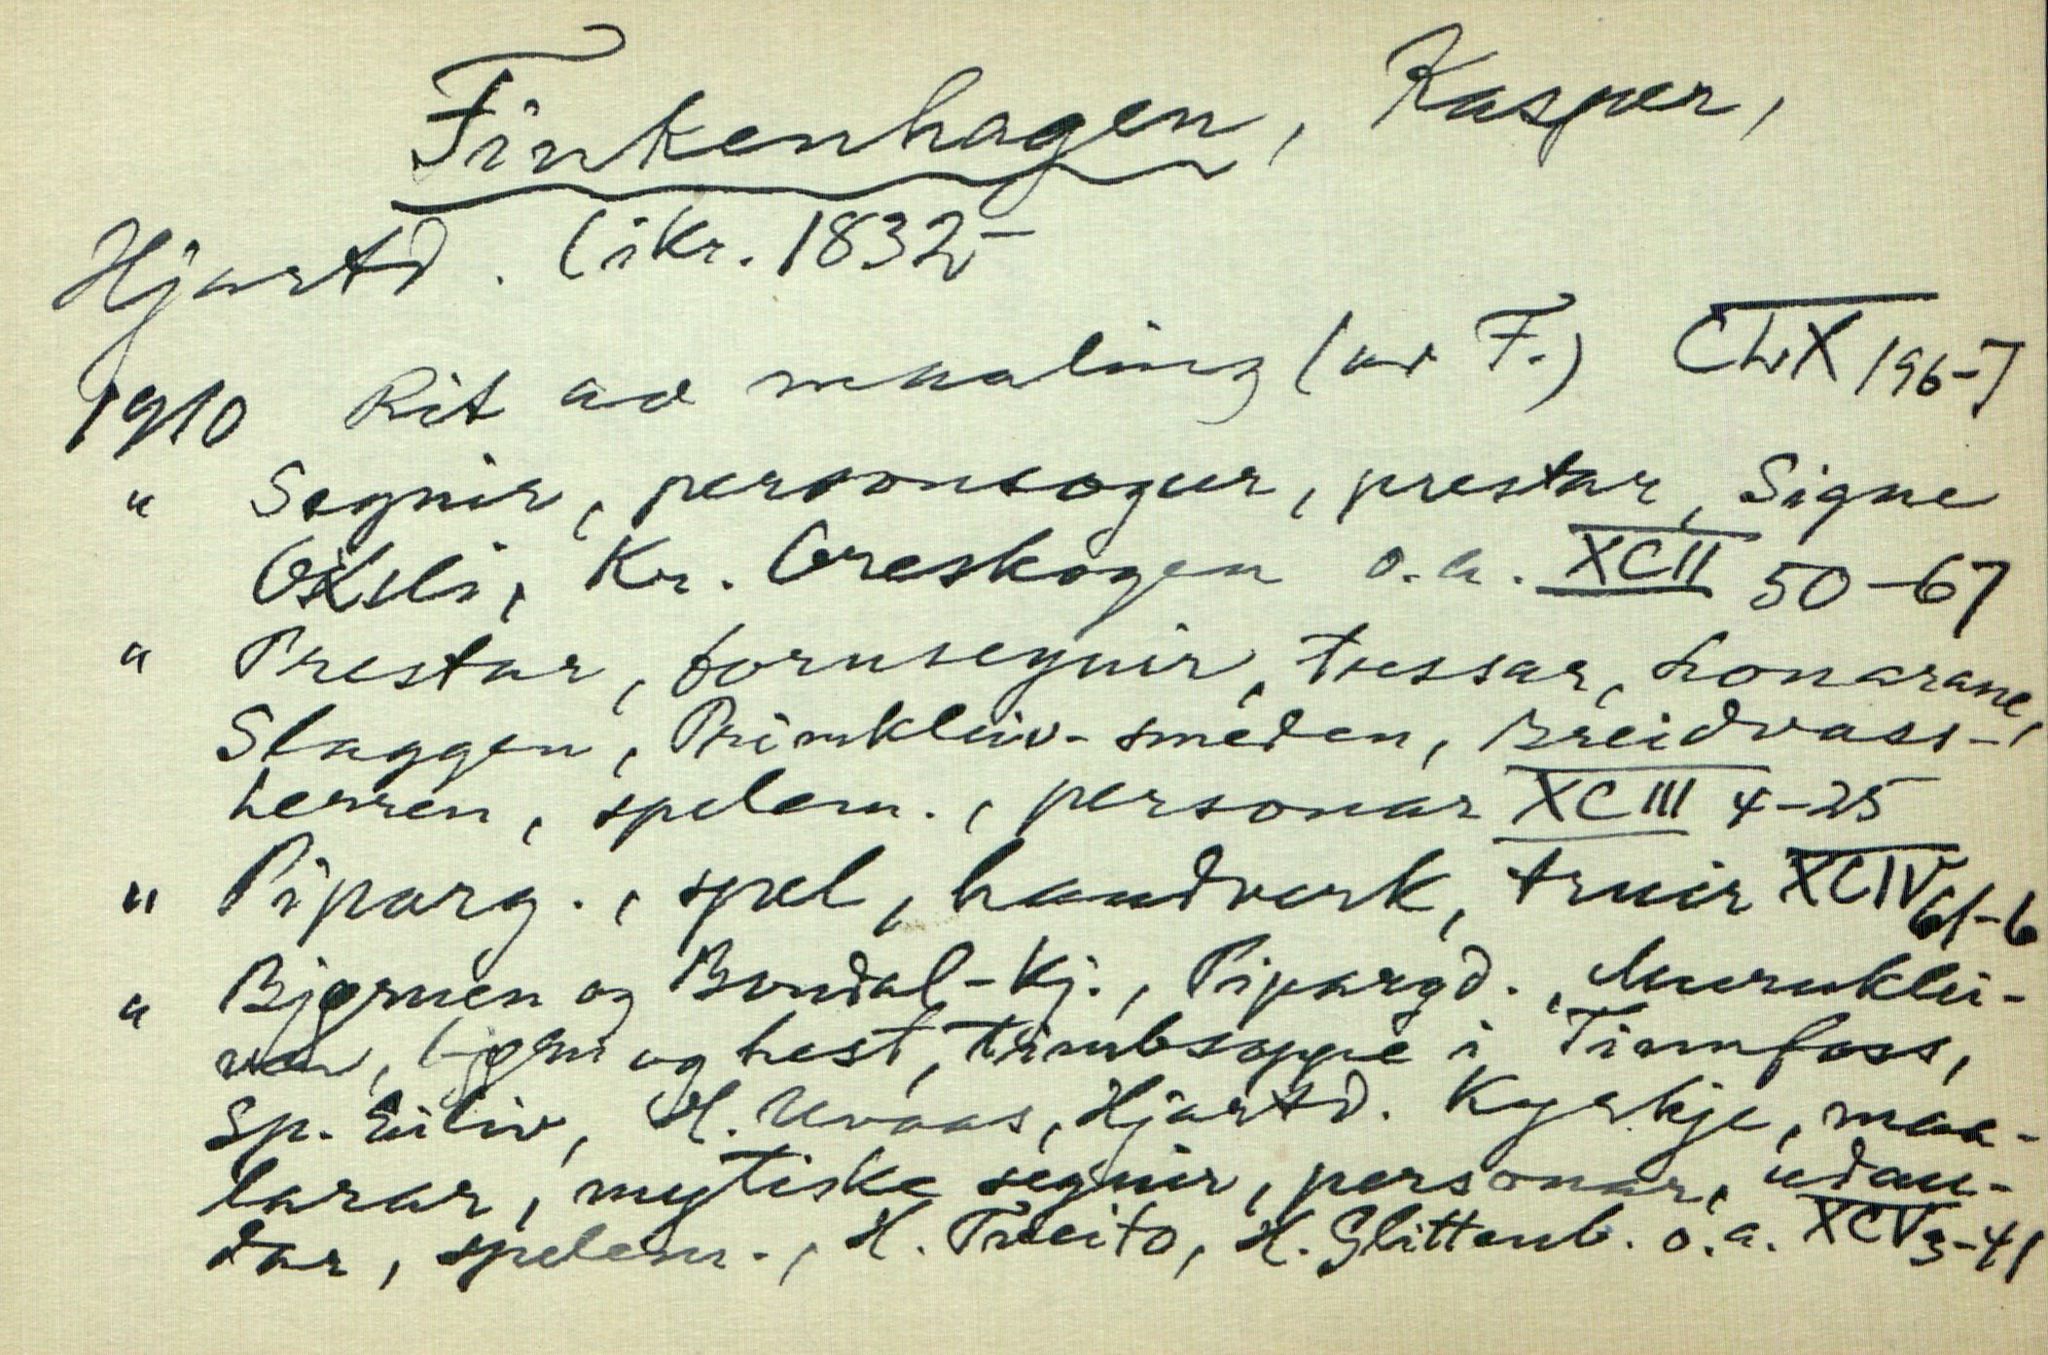 Finkenhagen, Kasper,
Hjartd. (ikr. 1832-
1910 Rit av maaling (av F.) CLX 196-7
" Segnir, personsogur, prestar, Signe
Kr. Greskogen o.a. XCII 50-67
" Prestar, fornsegnir, tussar,
Slaggen, smeden, Breidvass-
herren, spelem., personar XCIII 4-25
" Piparg., spel, handverk, truir XCIV 61-6
" Bjørnen og Bondal-Kj., Pipargd.,
ven, bjørn og hest, i Tinnfoss,
Sp. Eiliv, H. Uvaas, Hjartd. Kyrkje, maa-
larar, mytiske segnir, personar, udau-
dar, spelem., H. Træito, H. Glittenb. o.a. XCV 3-41